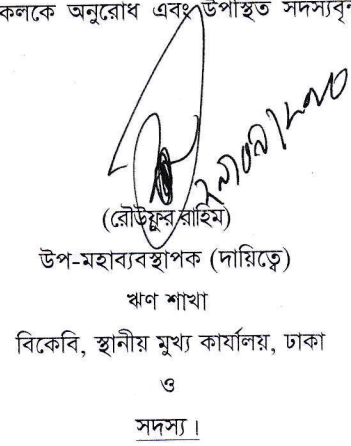 কলকে অনুরোধ এবং উপস্থিত সদস্যবৃন
(রৌউফুর রাহিম)
উপ-মহাব্যবস্থাপক (দায়িত্বে)
ঋণ শাখা
বিকেবি, স্থানীয় মুখ্য কার্যালয়, ঢাকা
ও
সদস্য।